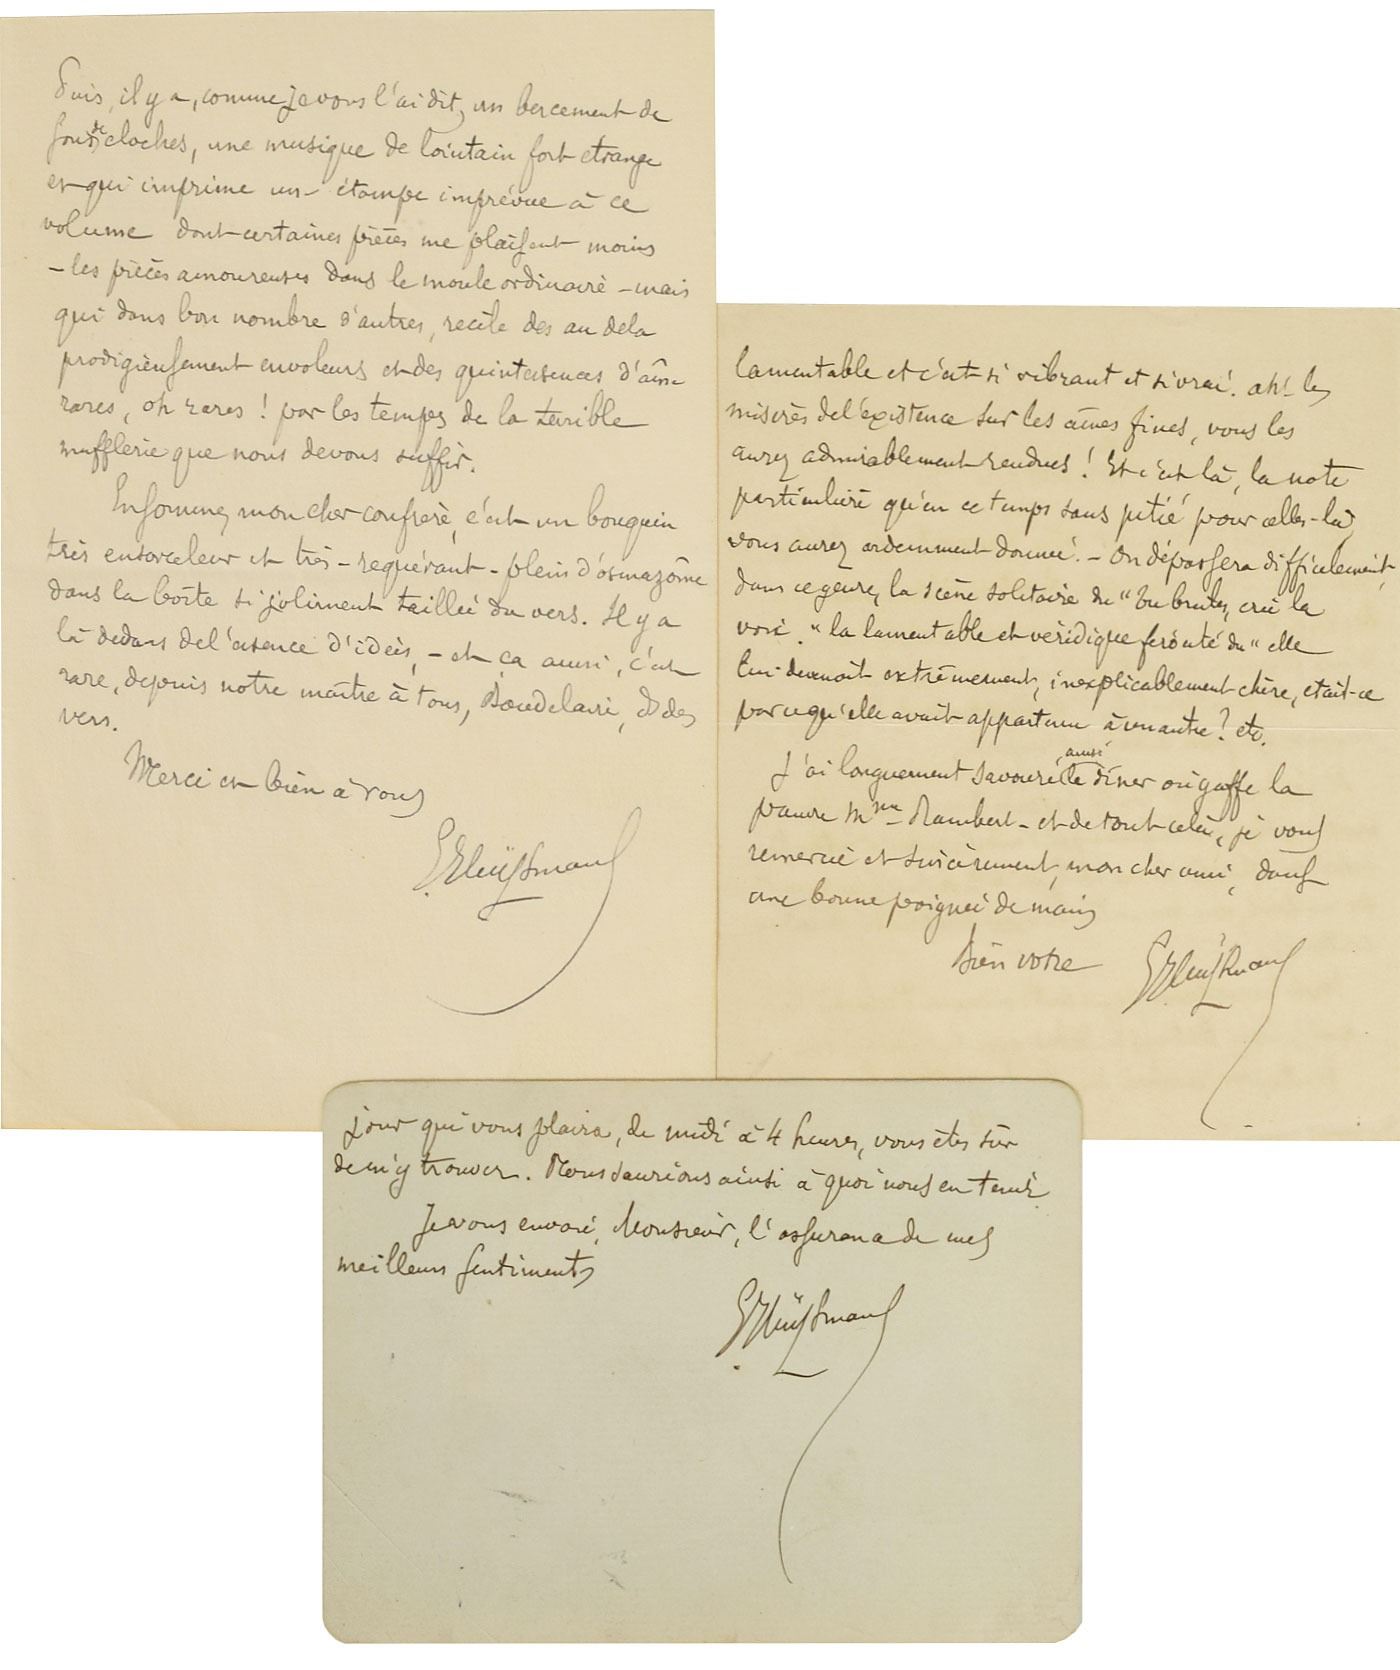 Puis, il y a, comme je vous l'ai dit, un bercement de
sons de cloches, une musique de lointain fort étrange
et qui imprime une étampe imprévue à ce
volume dont certaines pièces me plaisent moins
– les pièces amoureuses dans le moule ordinaire – mais
qui dans bon nombre d'autres, recèle des au dela
prodigieusement envoleurs et des quintessences d'âme
rares, oh rares ! par les temps de la terrible
mufflerie que nous devons
En somme, mon cher confrère, c'est un bouquin
très ensorceleur et très – requérant – plein d'ósmazôme
dans la boîte si joliment taillée du vers. Il y a
là dedans de l'essence d'idées, – et ça aussi, c'est
rare, depuis notre maître à tous, Baudelaire, ds des
vers.
Merci et bien à vous
G Huÿsmans
lamentable et c'est si vibrant et si vrai. ah! les
misères de l'existence sur les âmes fines, vous les
aurez admirablement rendues ! Et c'est là, la note
particulière qu'en ce temps sans pitié pour celles-là,
vous aurez ardemment donnée. – On dépassera difficilement,
dans ce genre, la scène solitaire du " tu brules, crie la
voix. " la lamentable et véridique du " elle
lui devenait extrêmement, inexplicablement chère, etait-ce
parce qu'elle avait appartenu à un autre ? etc.
J'ai longuement savouré aussi le dîner où gaffe la
pauvre Mme Rambert – et de tout cela, je vous
remercie et sincèrement, mon cher ami, dans
une bonne poignée de mains
Bien votre G Huÿsmans
jour qui vous plaira, de midi à 4 heures, vous êtes sûr
de m'y trouver. Nous saurions ainsi à quoi nous en tenir
Je vous envoie, Monsieur, l'assurance de mes
meilleurs sentiments
G Huÿsmans